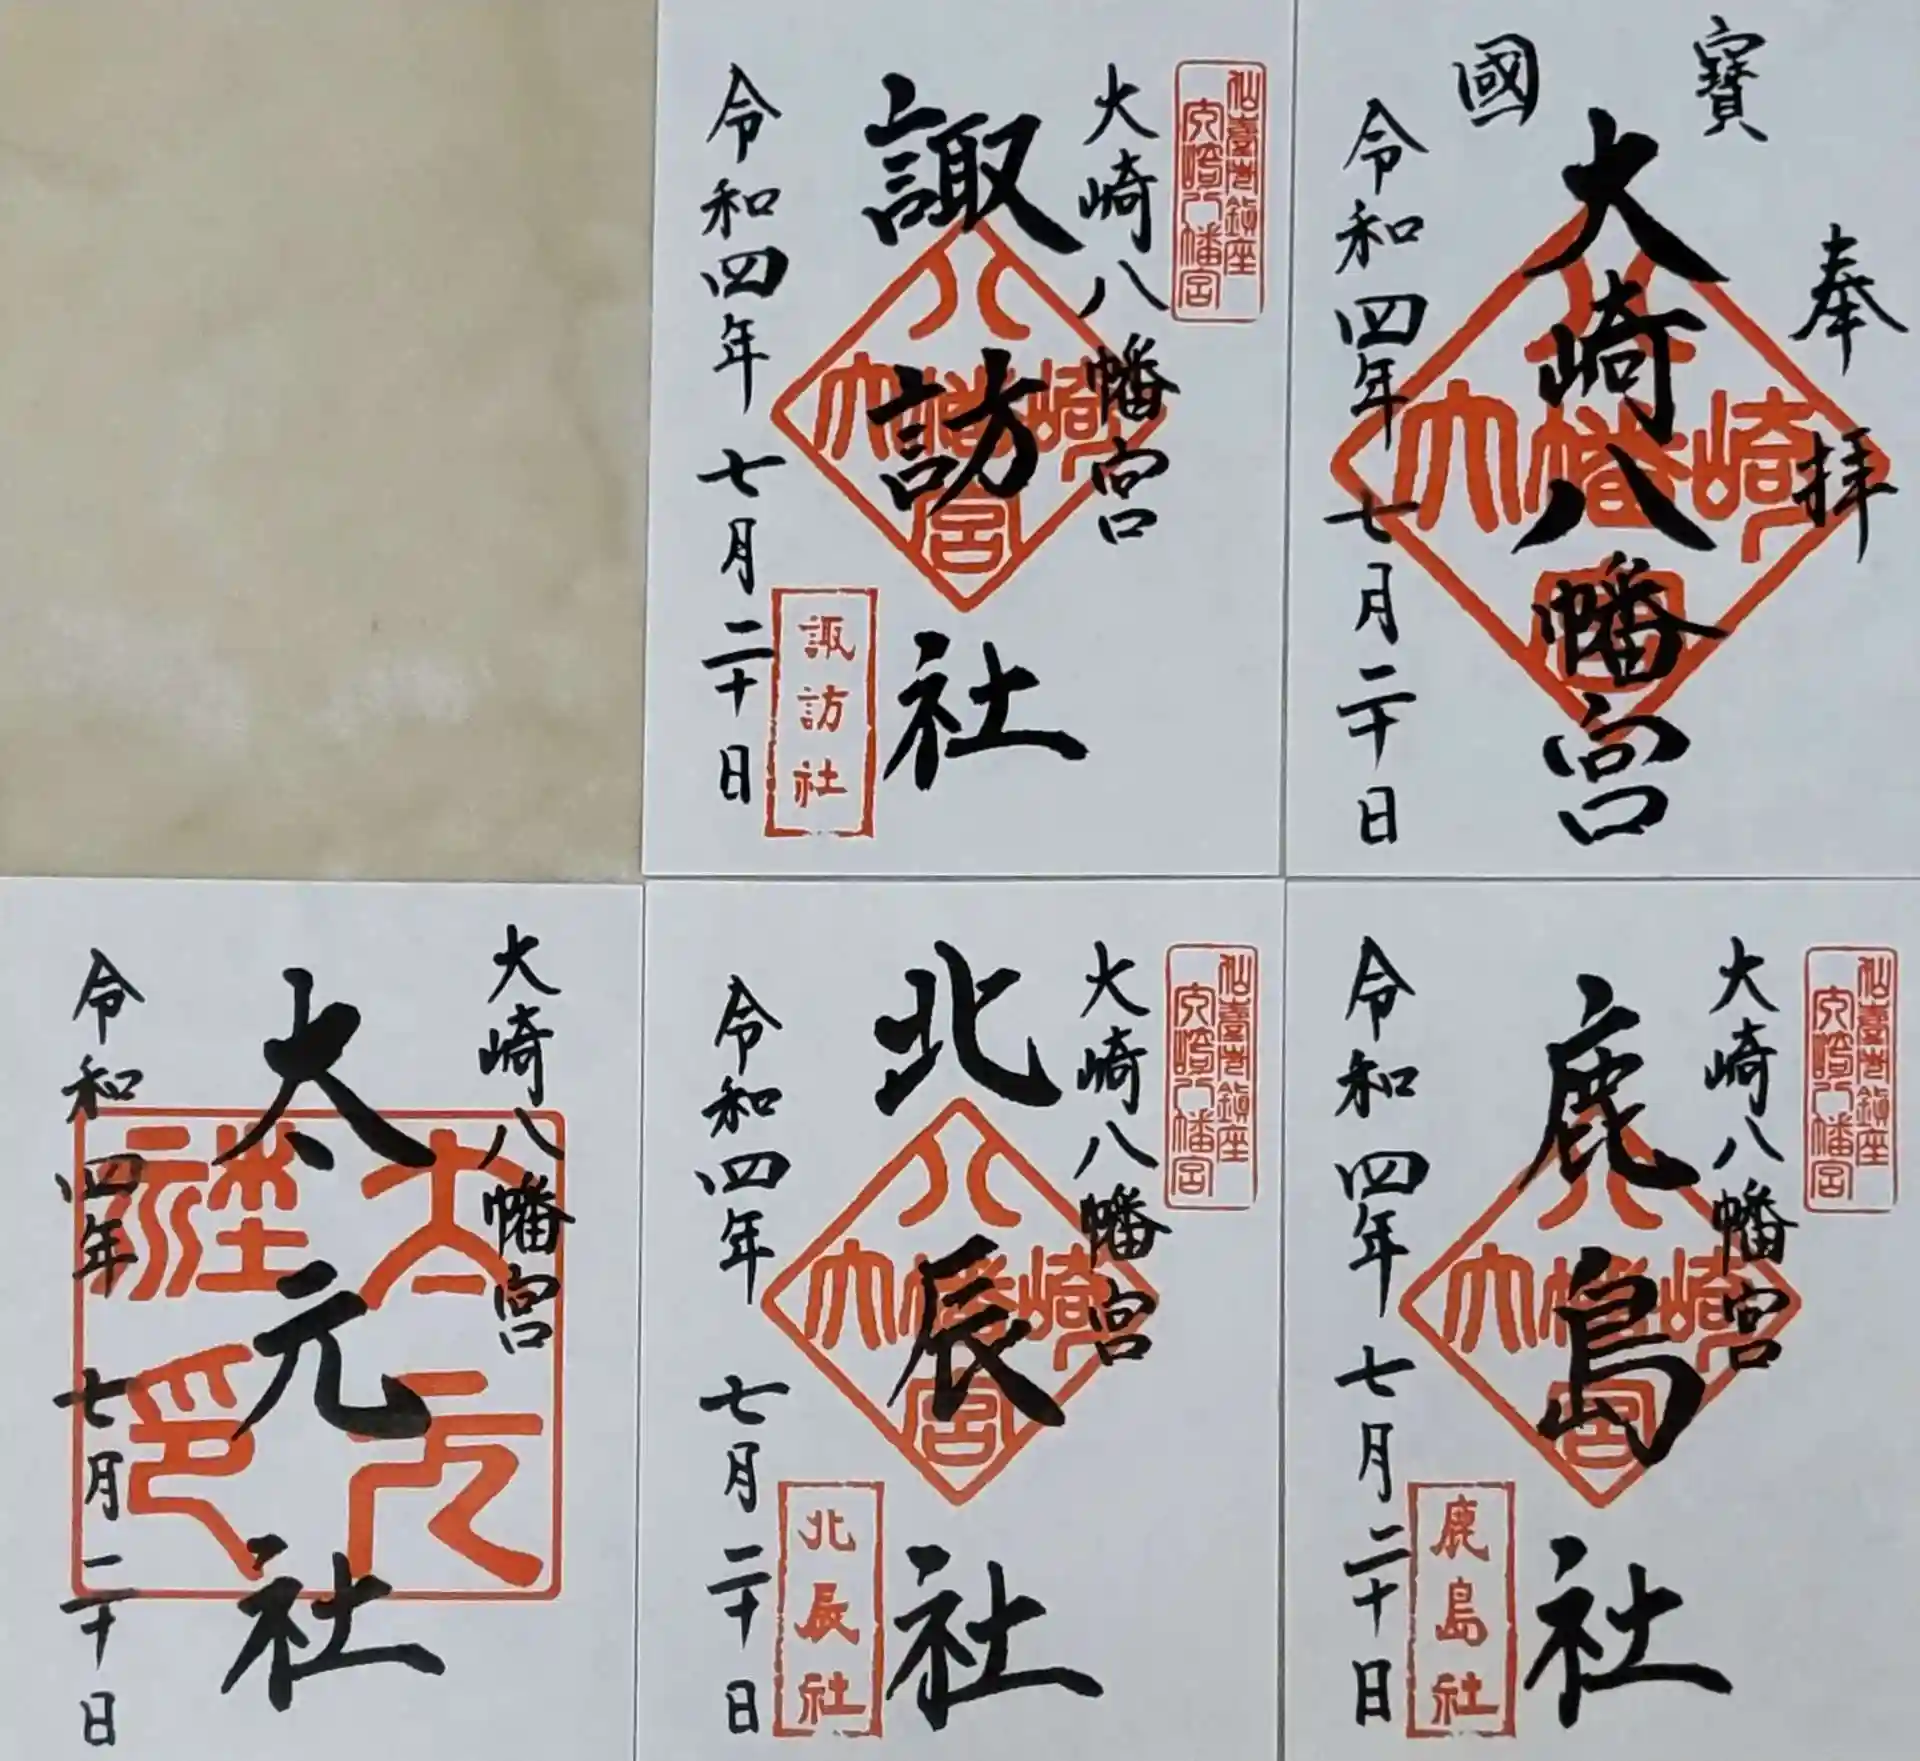 國寶
奉拝
大崎八幡宮
令和四年七月二十日
仙臺巷鎮座
大崎八幡宮
大崎八幡宮
諏訪社
諏訪社
令和四年七月二十日
大崎八幡宮
仙臺巷鎮座
大崎八幡宮
大崎八幡宮
鹿島社
大崎八幡宮
鹿島社
令和四年七月二十日
仙臺巷鎮座
大崎八幡宮
大崎八幡宮
北辰社
大崎八幡宮
北辰社
令和四年七月二十日
大崎八幡宮
太元社
令和四年七月二十日